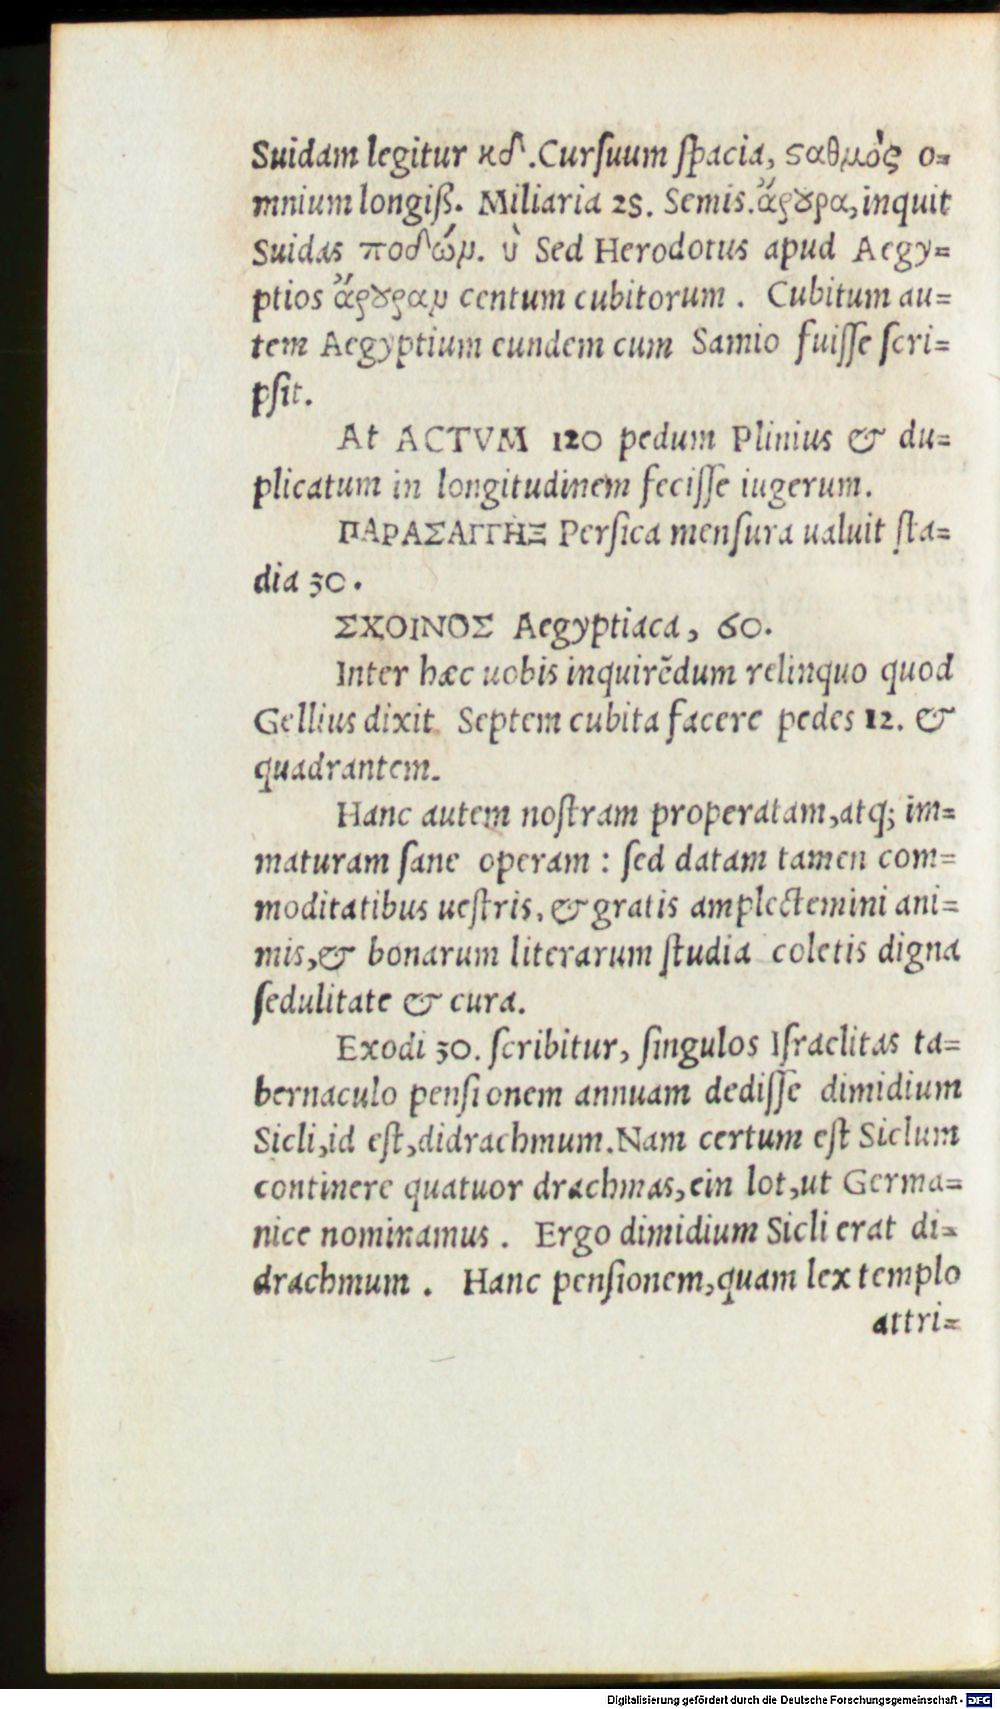 Suidam legitur κδ'. Curſuum ſpacia, ςαθμὸς o=
mnium longiß. Miliaria 28. Semis. ἄρȣρα, inquit
Suidas ποδῶν. ὺ Sed Herodotus apud Aegy=
ptios ἄρȣραν centum cubitorum. Cubitum au=
tem Aegyptium eundem cum Samio fuiſſe ſcri=
pſit.
At ACTVM 120 pedum Plinius & du=
plicatum in longitudinem feciſſe iugerum.
ΠΑΡΑΣΑΓΓΗΞ Perſica menſura ualuit ſta=
dia 30.
ΣΧΟΙΝΟΣ Aegyptiaca, 60.
Inter hæc uobis inquirẽdum relinquo quod
Gellius dixit Septem cubita facere pedes 12. &
quadrantem.
Hanc autem noſtram properatam, atq; im=
maturam ſane operam : ſed datam tamen com=
moditatibus ueſtris, & gratis amplectemini ani=
mis, & bonarum literarum ſtudia coletis digna
ſedulitate & cura.
Exodi 30. ſcribitur, ſingulos Iſraelitas ta=
bernaculo penſionem annuam dediſſe dimidium
Sicli, id eſt, didrachmum. Nam certum eſt Siclum
continere quatuor drachmas, ein lot, ut Germa=
nice nominamus. Ergo dimidium Sicli erat di=
drachmum. Hanc penſionem, quam lex templo
attri=
Digitalisierung gefördert durch die Deutsche Forschungsgemeinschaft - DFG